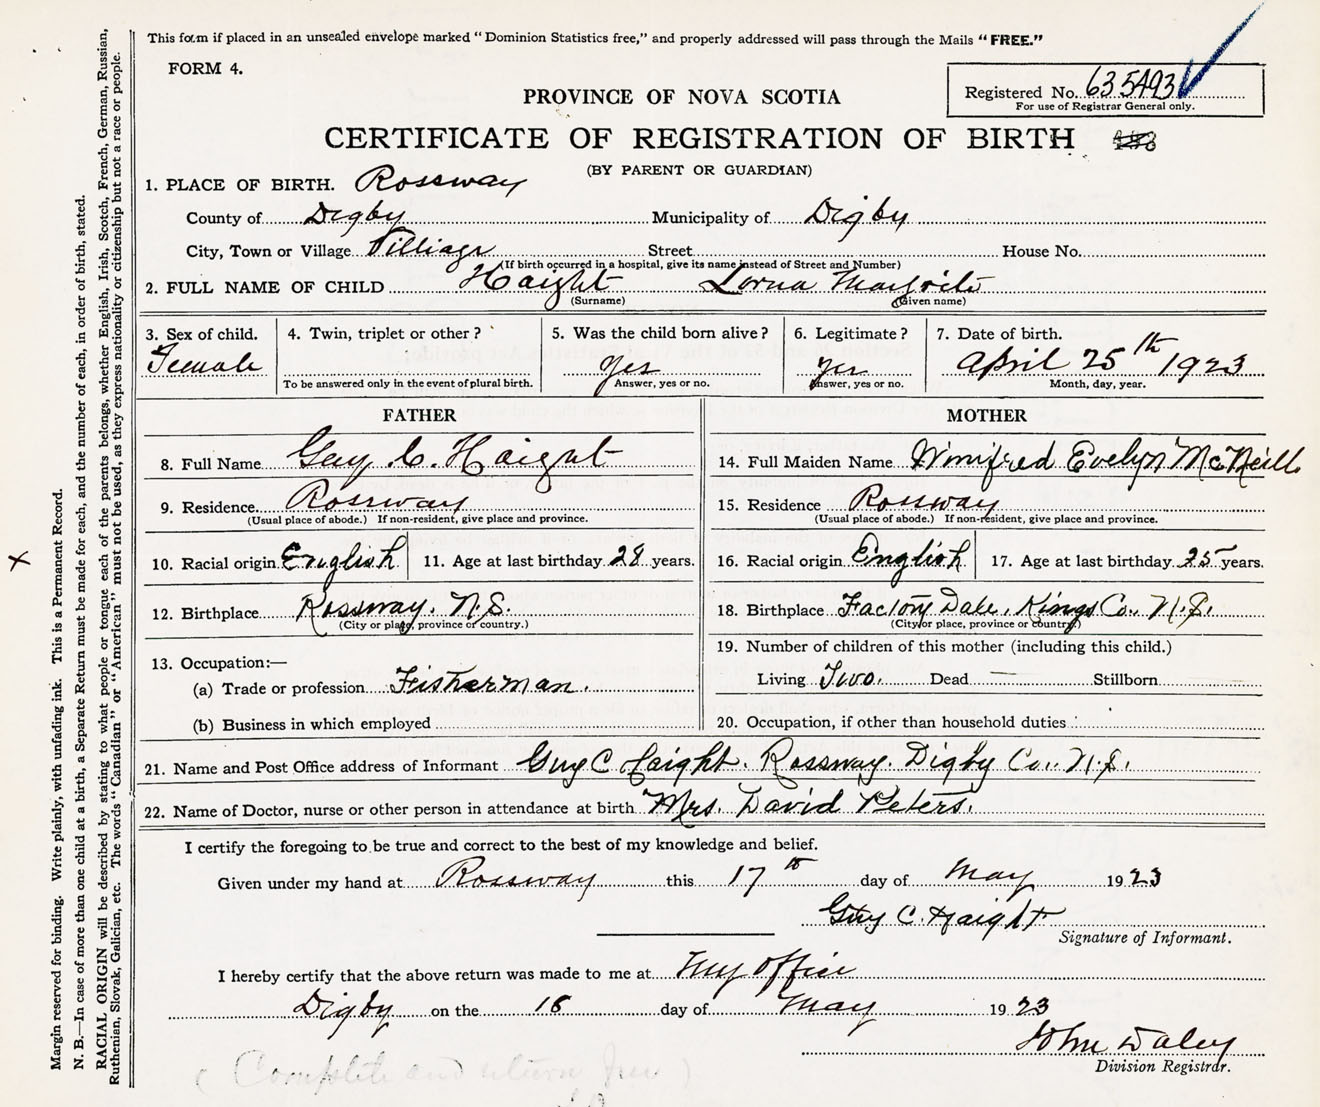 This form if placed in an unsealed envelope marked "Dominion Statistics free," and properly addressed will pass through the Mails "FREE."
FORM 4.
Registered No. 635493
For use of Registrar General only.
PROVINCE OF NOVA SCOTIA
CERTIFICATE OF REGISTRATION OF BIRTH
(BY PARENT OR GUARDIAN)
1. PLACE OF BIRTH. Rossway
County of Digby Municipality of Digby
City, Town or Village Villiage Street House No.
(If birth occurred in a hospital, give its name instead of Street and Number)
2. FULL NAME OF CHILD Haight Lorna Margrite
(Surname) (Given name)
3. Sex of child. 4. Twin, triplet or other? 5. Was the child born alive? 6. Legitimate? 7. Date of birth.
Female Yes Yes April 25th 1923
To be answered only in the event of plural birth. Answer, yes or no. Answer, yes or no. Month, day, year.
FATHER MOTHER
8. Full Name Guy C. Haight 14. Full Maiden Name Winifred Evelyn McNeill
9. Residence Rossway 15. Residence Rossway
(Usual place of abode.) If non-resident, give place and province. (Usual place of abode.) If non-resident, give place and province.
10. Racial origin English 11. Age at last birthday 28 years. 16. Racial origin English 17. Age at last birthday 25 years.
12. Birthplace Rossway. N.S. 18. Birthplace Factory Dale, Kings Co., N.S.
(City or place, province or country.) (City or place, province or country.)
19. Number of children of this mother (including this child.)
13. Occupation:—
(a) Trade or profession Fisherman. Living Two. Dead — Stillborn
(b) Business in which employed 20. Occupation, if other than household duties
21. Name and Post Office address of Informant Guy C Haight. Rossway. Digby Co., N.S.
22. Name of Doctor, nurse or other person in attendance at birth Mrs. David Peters.
I certify the foregoing to be true and correct to the best of my knowledge and belief.
Given under my hand at Rossway this 17th day of May 1923
Guy C. Haight
Signature of Informant.
I hereby certify that the above return was made to me at My Office
Digby on the 18 day of May 1923
John Daley
Division Registrar.
(Complete and return free)
Margin reserved for binding. Write plainly, with unfading ink. This is a Permanent Record.
N. B.—In case of more than one child at a birth, a Separate Return must be made for each, and the number of each, in order of birth, stated.
RACIAL ORIGIN will be described by stating to what people or tongue each of the parents belongs, whether English, Irish, Scotch, French, German, Russian,
Ruthenian, Slovak, Galician, etc. The words "Canadian" or "American" must not be used, as they express nationality or citizenship but not a race or people.